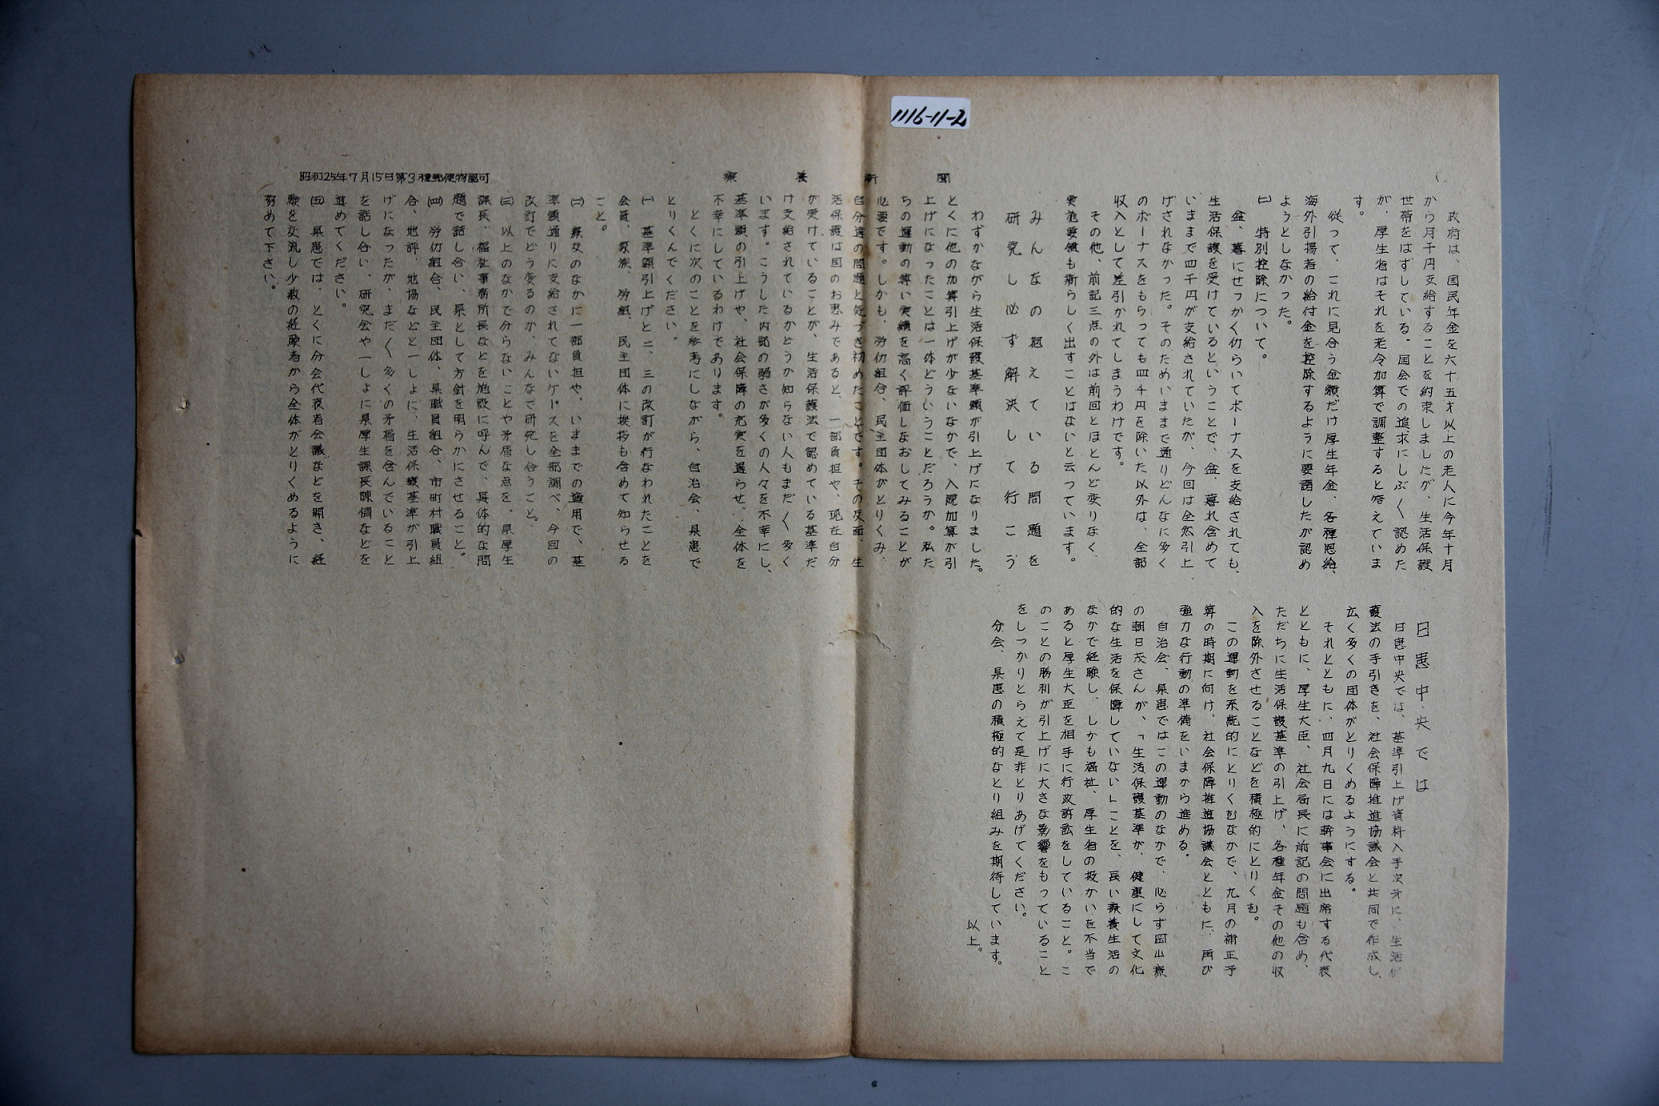 1116-11-2
昭和25年7月15日第3種郵便物認可
療養新聞
政府は、国民年金を六十五才以上の老人に今年十月
から月千円支給することを約束しましたが、生活保護
世帯をはずしている。国会での追求にしぶ〱認めた
が、厚生省はそれを老令加算で調整すると答えていま
す。
従って、これに見合う金額だけ厚生年金、各種恩給、
海外引揚者の給付金を控除するように要請したが認め
ようとしなかった。
㈡　特別控除について。
盆、暮にせっかく仂らいてボーナスを支給されても、
生活保護を受けているということで、盆、暮れ含めて
いままで四千円が支給されていたが、今回は全然引上
げされなかった。そのためいままで通りどんなに多く
のボーナスをもらっても四千円を除いた以外は、全部
収入として差引かれてしまうわけです。
その他、前記三点の外は前回とほとんど変りなく、
実施要領も新らしく出すことはないと云っています。
みんなの超えている問題を
研究し必ず解決して行こう
わずかながら生活保護基準額が引上げになりました。
とくに他の加算引上げが少ないなかで、入院加算が引
上げになったことは一体どういうことだろうか。私た
ちの運動の尊い実績を高く評価しなおしてみることが
必要です。しかも、労仂組合、民主団体がとりくみ、
自分達の問題と気づき初めたことです。その反面、生
活保護は国のお恵みであると、一部負担や、現在自分
が受けていることが、生活保護法で認めている基準だ
け支給されているかどうか知らない人もまだ〱多く
います。こうした内部の弱さが多くの人々を不幸にし、
基準額の引上げや、社会保障の充実を遅らせ、全体を
不幸にしているわけであります。
とくに次のことを参考にしながら、自治会、県患で
とりくんでください。
㈠　基準額引上げと二、三の改訂が行なわれたことを
会員、家族、労組、民主団体に挨拶も含めて知らせる
こと。
㈡　療友のなかに一部負担や、いままでの適用で、基
準額通りに支給されてないケースを全部調べ、今回の
改訂でどう変るのか、みんなで研究し合うこと。
㈢　以上のなかで分らないことや矛盾な点を、県厚生
課長、福祉事務所長などを施設に呼んで、具体的な問
題で話し合い、県として方針を明らかにさせること。
㈣　労仂組合、民主団体、県職員組合、市町村職員組
合、地評、地協などと一しょに、生活保護基準が引上
げになったが、まだ〱多くの矛盾を含んでいること
を話し合い、研究会や一しょに県厚生課長陳情などを
進めてください。
㈣　県患では、とくに分会代表者会議などを開き、経
験を交流し少数の経験者から全体がとりくめるように
努めて下さい。
日患中央では
日患中央では、基準引上げ資料入手次第に、生活保
護法の手引きを、社会保障推進協議会と共同で作成し、
広く多くの団体がとりくめるようにする。
それとともに、四月九日には幹事会に出席する代表
とともに、厚生大臣、社会局長に前記の問題も含め、
ただちに生活保護基準の引上げ、各種年金その他の収
入を除外させることなどを積極的にとりくむ。
この運動を系統的にとりくむなかで、九月の補正予
算の時期に向け、社会保障推進協議会とともに、再び
強力な行動の準備をいまから進める。
自治会、県患ではこの運動のなかで、必らず岡山療
の朝日茂さんが、「生活保護基準が、健康にして文化
的な生活を保障していない」ことを、長い療養生活の
なかで経験し、しかも福祉、厚生省の扱かいを不当で
あると厚生大臣を相手に行政訴訟をしていること。こ
のことの勝利が引上げに大きな影響をもっていること
をしっかりとらえて是非とりあげてください。
分会、県患の積極的なとり組みを期待しています。
以上。